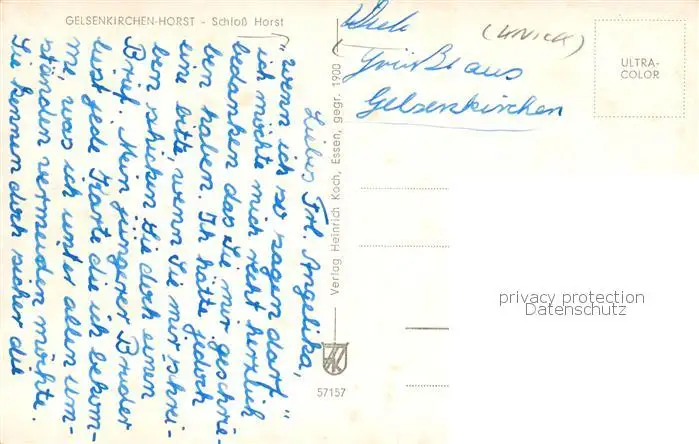 GELSENKIRCHEN-HORST - Schloß Horst
Liebes Frl. Angelika,
"wenn ich so sagen darf"
ich möchte mich recht herzlich
bedanken das Sie mir geschrie-
ben haben. Ich hätte jedoch
eine bitte, wenn Sie mir schrei-
ben schicken Sie doch einen
Brief. Mein jüngerer Bruder
liest jede Karte die ich bekom-
me, was ich unter allen Um-
ständen vermeiden möchte.
Sie kennen doch sicher die
Verlag Heinrich Koch, Essen, gegr. 1900
57157
Viele
Grüße aus
Gelsenkirchen
ULTRA-
COLOR
privacy protection
Datenschutz